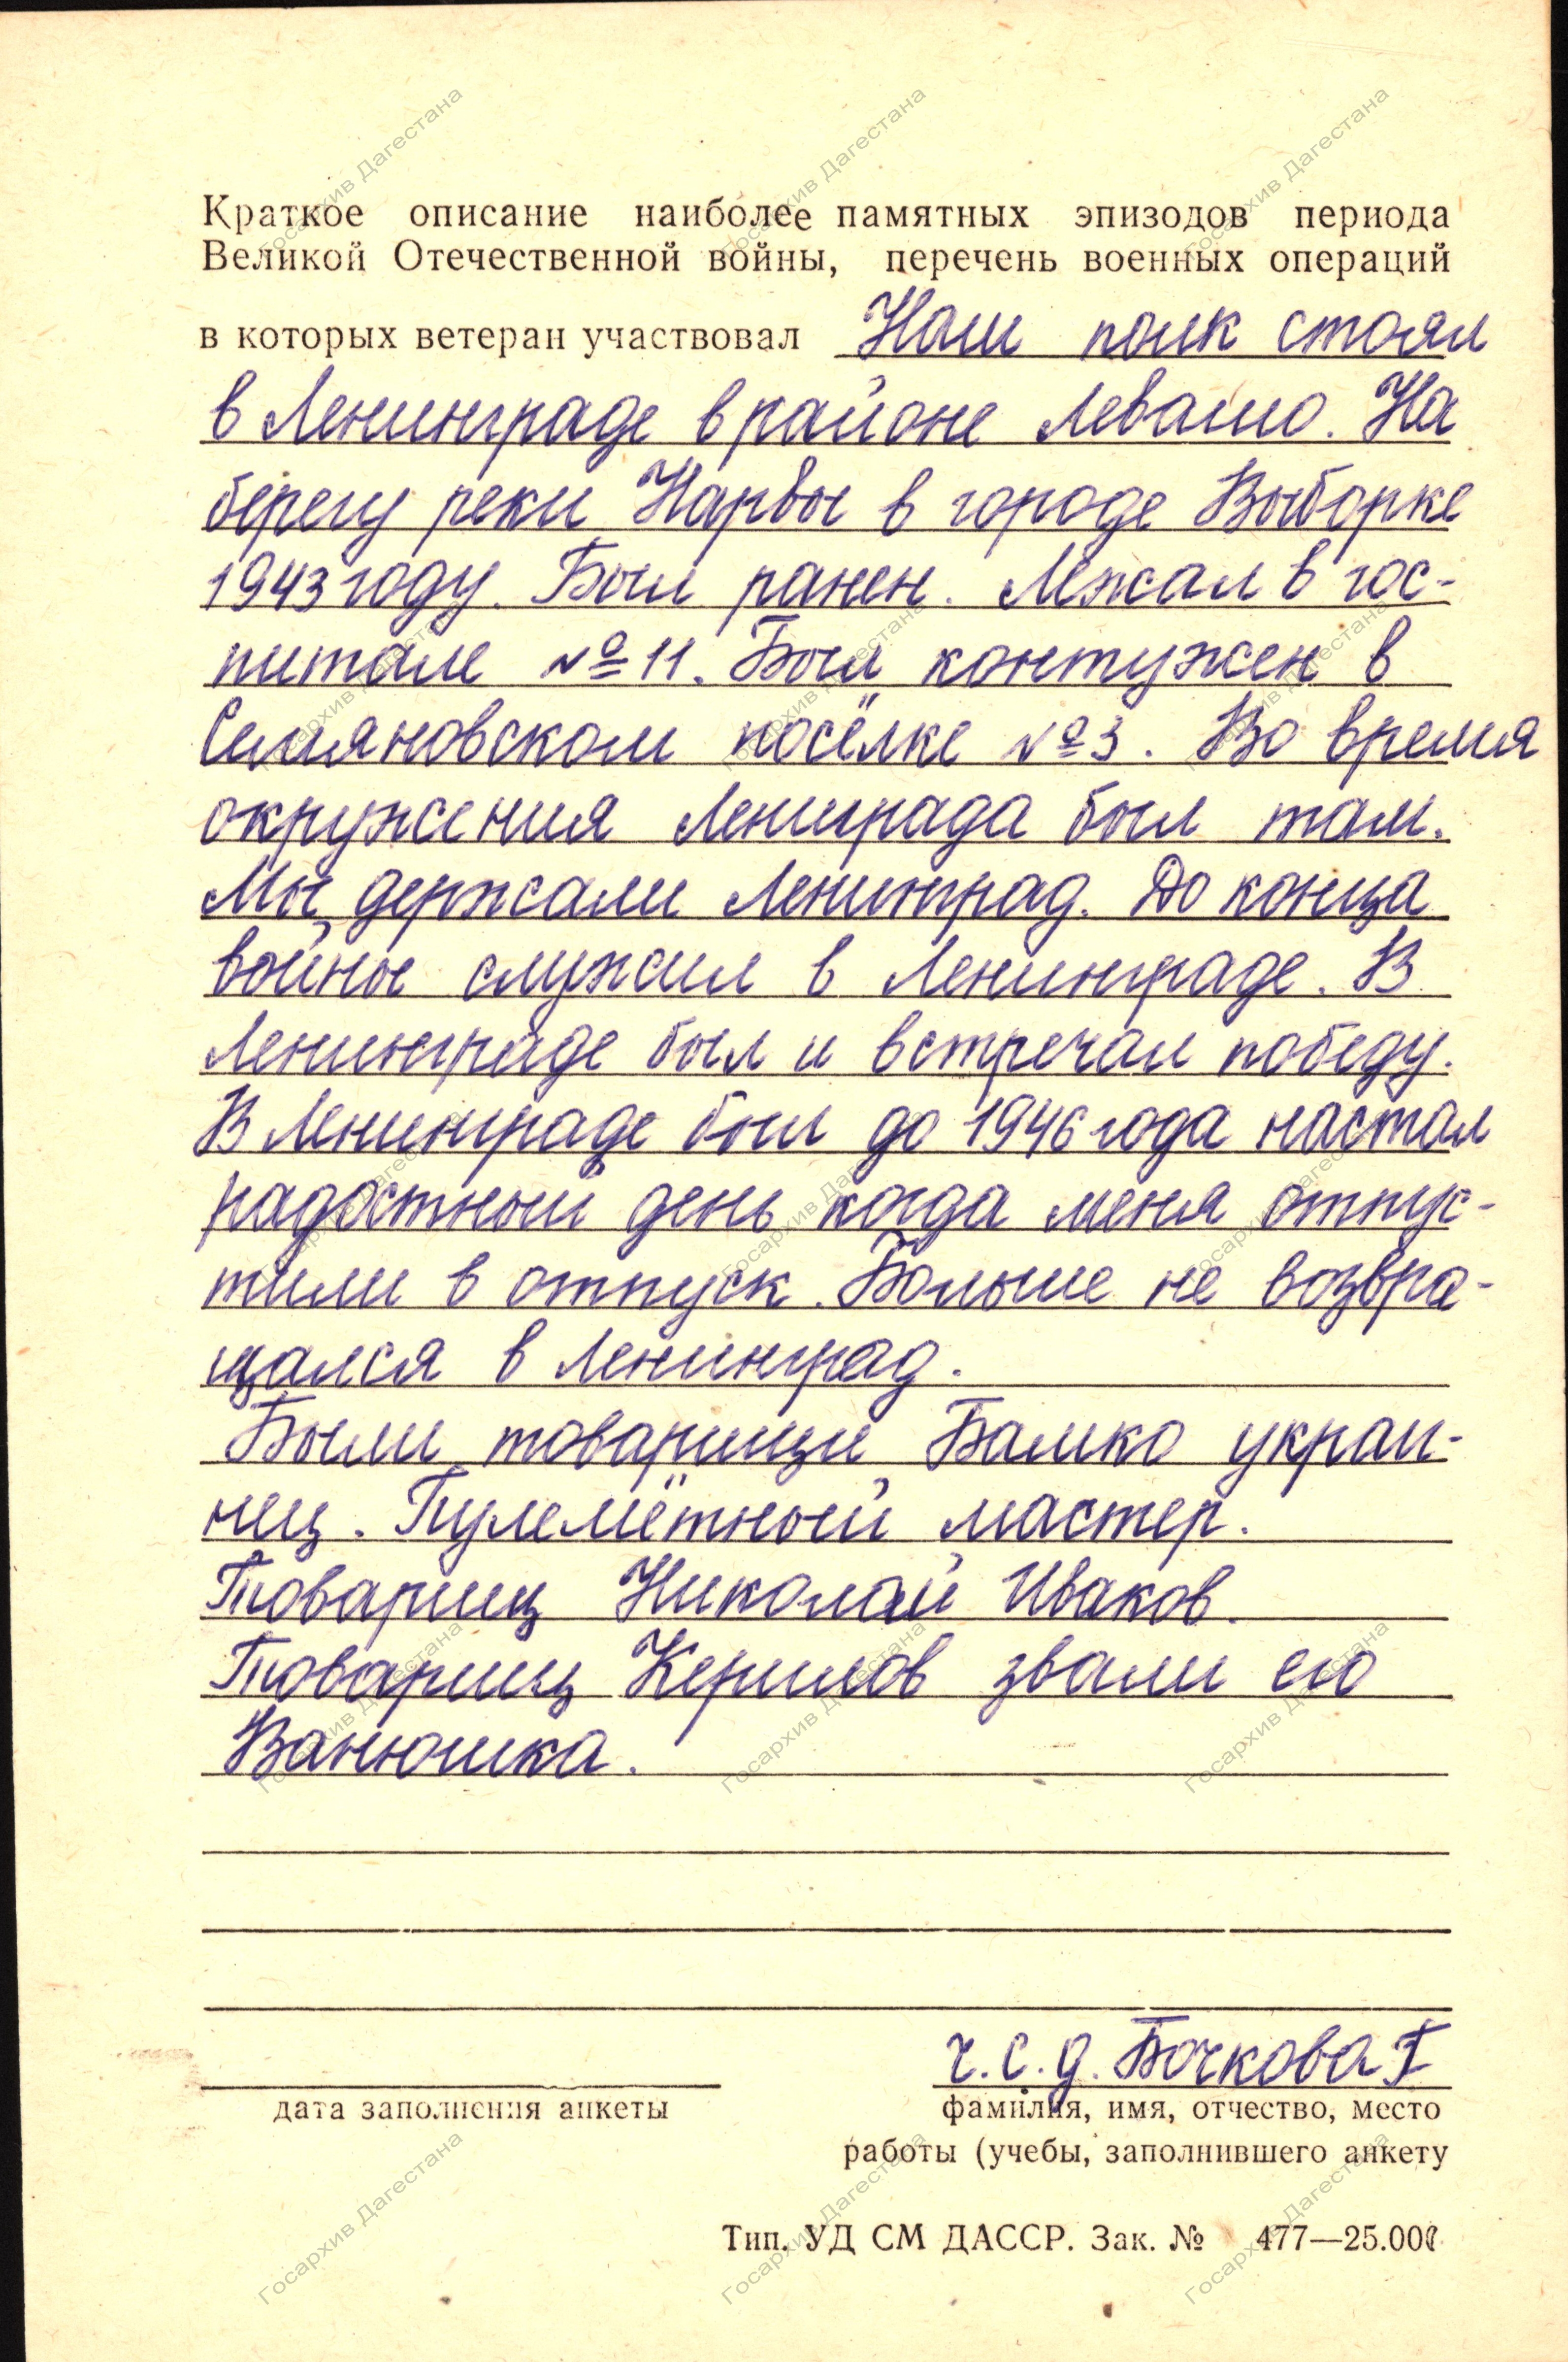 Краткое описание наиболее памятных эпизодов периода
Великой Отечественной войны, перечень военных операций
в которых ветеран участвовал Наш полк стоял
в Ленинграде в районе Левашо. На
берегу реки Нарвы в городе Выборке
1943 году. Был ранен. Лежал в гос-
питале №11. Был контужен в
Симяновском посёлке №3. Во время
окружения Лениграда был там.
Мы держали Ленинград. До конца
войны служил в Ленинграде. В
Ленинграде был и встречал победу.
В Ленинграде был до 1946 года настал
радостный день когда меня отпус-
тили в отпуск. Больше не возвра-
щался в Ленинград.
Были товарищи Бамко украи-
нец. Пулемётный мастер.
Товарищ Николай Иваков.
Товарищ Керилов звали его
Ванюшка.
ч.с.д. Бочкова Г
дата заполнения анкеты
фамилия, имя, отчество, место
работы (учебы, заполнившего анкету
Тип. УД СМ ДАССР. Зак. № 477—25.000
Госархив Дагестана